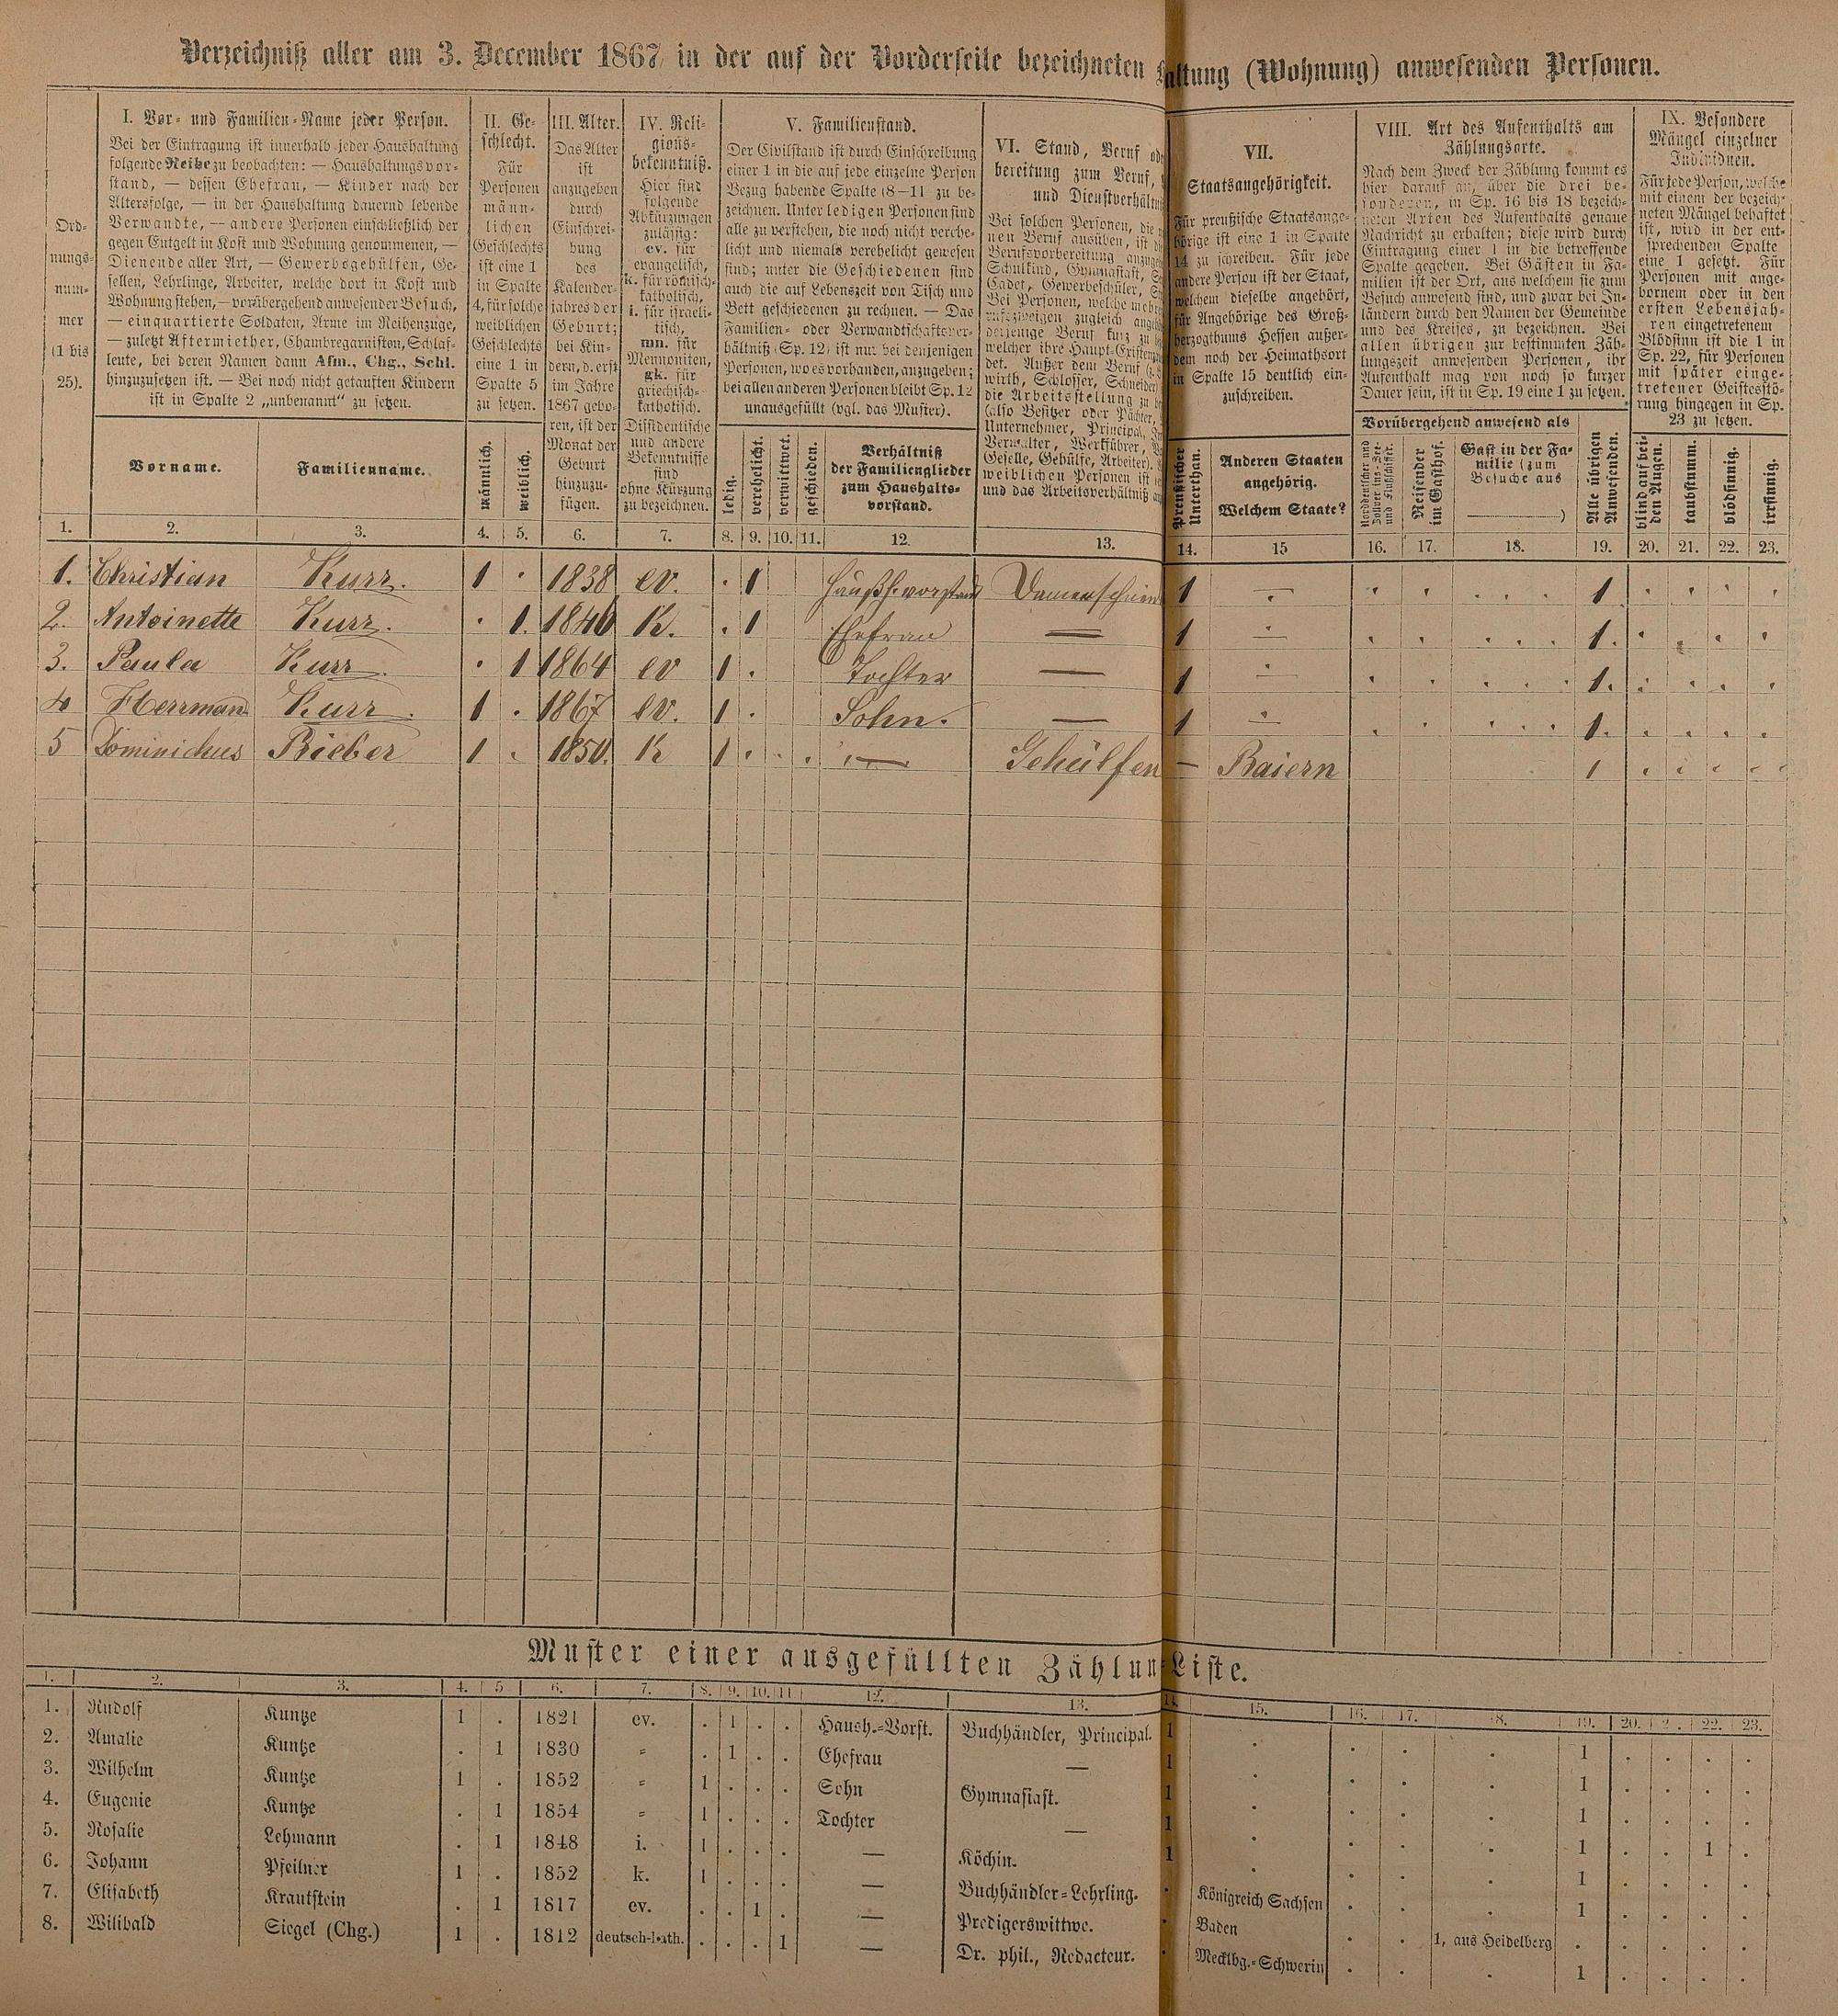 Verzeichniß aller am 3. December 1867 in der auf der Vorderseite bezeichneten altung (Wohnung) anwesenden Personen.
Ord-
nungs-
num-
mer
(1 bis
25).
I. Vor- und Familien-Name jeder Person.
Bei der Eintragung ist innerhalb jeder Haushaltung
folgende Reihe zu beobachten: — Haushaltungsvor-
stand, — dessen Ehefrau, — Kinder nach der
Altersfolge, — in der Haushaltung dauernd lebende
Verwandte, — andere Personen einschließlich der
gegen Entgelt in Kost und Wohnung genommenen, —
Dienende aller Art, — Gewerbsgehülfen, Ge-
sellen, Lehrlinge, Arbeiter, welche dort in Kost und
Wohnung stehen, — vorübergehend anwesender Besuch,
— einquartierte Soldaten, Arme im Reihenzuge,
— zuletzt Aftermiether, Chambregarnisten, Schlaf-
leute, bei deren Namen dann Afm., Chg., Schl.
hinzuzusetzen ist. — Bei noch nicht getauften Kindern
ist in Spalte 2 „unbenannt“ zu setzen.
Vorname.
Familienname.
II. Ge-
schlecht.
Für
Personen
männ-
lichen
Geschlechts
ist eine 1
in Spalte
4, für solche
weiblichen
Geschlechts
eine 1 in
Spalte 5
zu setzen.
männlich.
weiblich.
III. Alter.
Das Alter
ist
anzugeben
durch
Einschrei-
bung
des
Kalender-
jahres der
Geburt;
bei Kin-
dern, d. erst
im Jahre
1867 gebo-
ren, ist der
Monat der
Geburt
hinzuzu-
fügen.
IV. Reli-
gions-
bekenntniß.
Hier sind
folgende
Abkürzungen
zulässig:
ev. für
evangelisch,
k. für römisch-
katholisch,
i. für israeli-
tisch,
mn. für
Mennoniten,
gk. für
griechisch-
katholisch.
Dissidentische
und andere
Bekenntnisse
sind
ohne Kürzung
zu bezeichnen.
V. Familienstand.
Der Civilstand ist durch Einschreibung
einer 1 in die auf jede einzelne Person
Bezug habende Spalte (8—11) zu be-
zeichnen. Unter ledigen Personen sind
alle zu verstehen, die noch nicht verehe-
licht und niemals verehelicht gewesen
sind; unter die Geschiedenen sind
auch die auf Lebenszeit von Tisch und
Bett geschiedenen zu rechnen. — Das
Familien- oder Verwandtschaftsver-
hältniß (Sp. 12) ist nur bei denjenigen
Personen, wo es vorhanden, anzugeben;
bei allen anderen Personen bleibt Sp. 12
unausgefüllt (vgl. das Muster).
ledig.
verehelicht.
verwittwet.
geschieden.
Verhältniß
der Familienglieder
zum Haushalts-
vorstand.
VI. Stand, Beruf
bereitung zum Beruf,
und Dienstverhältn
Bei solchen Personen, die
nen Beruf ausüben, ist
Berufsvorbereitung
Schulkind, Gymnasiast,
Cadet, Gewerbeschüler,
Bei Personen, welche
rufszweigen zugleich
derjenige Beruf kurz zu
welcher ihre Haupt-
det. Außer dem Beruf
wirth, Schlosser, Schneider)
die Arbeitsstellung zu
(also Besitzer oder Pächter,
Unternehmer, Principal,
Verwalter, Werkführer,
Geselle, Gehülfe, Arbeiter).
weiblichen Personen ist
und das Arbeitsverhältniß
VII.
Staatsangehörigkeit.
Für preußische Staatsange-
hörige ist eine 1 in Spalte
14 zu schreiben. Für jede
andere Person ist der Staat,
welchem dieselbe angehört,
für Angehörige des Groß-
herzogthums Hessen außer-
dem noch der Heimathsort
in Spalte 15 deutlich ein-
zuschreiben.
Preußischer
Unterthan.
Anderen Staaten
angehörig.
Welchem Staate?
VIII. Art des Aufenthalts am
Zählungsorte.
Nach dem Zweck der Zählung kommt es
hier darauf an, über die drei be-
sonderen, in Sp. 16 bis 18 bezeich-
neten Arten des Aufenthalts genaue
Nachricht zu erhalten; diese wird durch
Eintragung einer 1 in die betreffende
Spalte gegeben. Bei Gästen in Fa-
milien ist der Ort, aus welchem sie zum
Besuch anwesend sind, und zwar bei In-
ländern durch den Namen der Gemeinde
und des Kreises, zu bezeichnen. Bei
allen übrigen zur bestimmten Zäh-
lungszeit anwesenden Personen, ihr
Aufenthalt mag von noch so kurzer
Dauer sein, ist in Sp. 19 eine 1 zu setzen.
Vorübergehend anwesend als
Norddeutscher und
Zollvereins-See-
und Flußschiffer.
Reisender
im Gasthof.
Gast in der Fa-
milie (zum
Besuche aus
)
Alle übrigen
Anwesenden.
IX. Besondere
Mängel einzelner
Individuen.
Für jede Person, welche
mit einem der bezeich-
neten Mängel behaftet
ist, wird in der ent-
sprechenden Spalte
eine 1 gesetzt. Für
Personen mit ange-
bornem oder in den
ersten Lebensjah-
ren eingetretenem
Blödsinn ist die 1 in
Sp. 22, für Personen
mit später einge-
tretener Geistesstö-
rung hingegen in Sp.
23 zu setzen.
blind auf bei-
den Augen.
taubstumm.
blödsinnig.
irrsinnig.
1. 2. 3. 4. 5. 6. 7. 8. 9. 10. 11. 12. 13. 14. 15 16. 17. 18. 19. 20. 21. 22. 23.
1. Christian Kurz. 1 · 1838 ev. · 1 Haußh. vorstand 1 — 1
2. Antoinette Kurz. · 1. 1840 K. · 1 Ehefrau — 1 — 1.
3. Paula Kurz. · 1 1864 ev 1 · Tochter — 1 — 1.
4 Herrman Kurz. 1 · 1867 ev. 1 · Sohn. — 1 — 1.
5 Dominichus Rieber 1 · 1850. K 1 · · · — Gehülfen — Baiern 1
Muster einer ausgefüllten Zählun Liste.
1. 2. 3. 4. 5 6. 7. 8. 9. 10. 11 12. 13. 14. 15. 16. 17. 18. 19. 20. 2 . 22. 23.
1. Rudolf Kuntze 1 . 1821 ev. . 1 . . Haush.-Vorst. Buchhändler, Principal. 1 . . . . 1 . . . .
2. Amalie Kuntze . 1 1830 „ . 1 . . Ehefrau — 1 . . . . 1 . . . .
3. Wilhelm Kuntze 1 . 1852 „ 1 . . . Sohn Gymnasiast. 1 . . . . 1 . . . .
4. Eugenie Kuntze . 1 1854 „ 1 . . . Tochter — 1 . . . . 1 . . 1 .
5. Rosalie Lehmann . 1 1848 i. 1 . . . — Köchin. 1 . . . . 1 . . . .
6. Johann Pfeilner 1 . 1852 k. 1 . . . — Buchhändler-Lehrling. . Königreich Sachsen . . . 1 . . . .
7. Elisabeth Krautstein . 1 1817 ev. . . 1 . — Predigerswittwe. . Baden . . 1, aus Heidelberg . . . . .
8. Wilibald Siegel (Chg.) 1 . 1812 deutsch-kath. . . . 1 — Dr. phil., Redacteur. . Mecklbg.-Schwerin . . . 1 . . . .